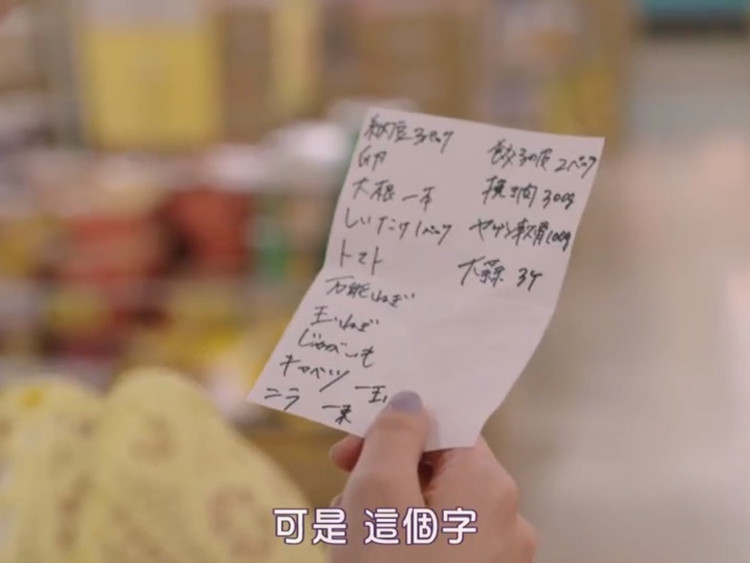 納豆3パック
卵
大根 一本
しいたけ1パック
トマト
万能ねぎ
玉ねぎ
じゃがいも
キャベツ 一玉
ニラ 一束
餃子の皮 2パック
挽き肉 300g
ヤゲン軟骨100g
大蒜 3ケ
可是 這個字